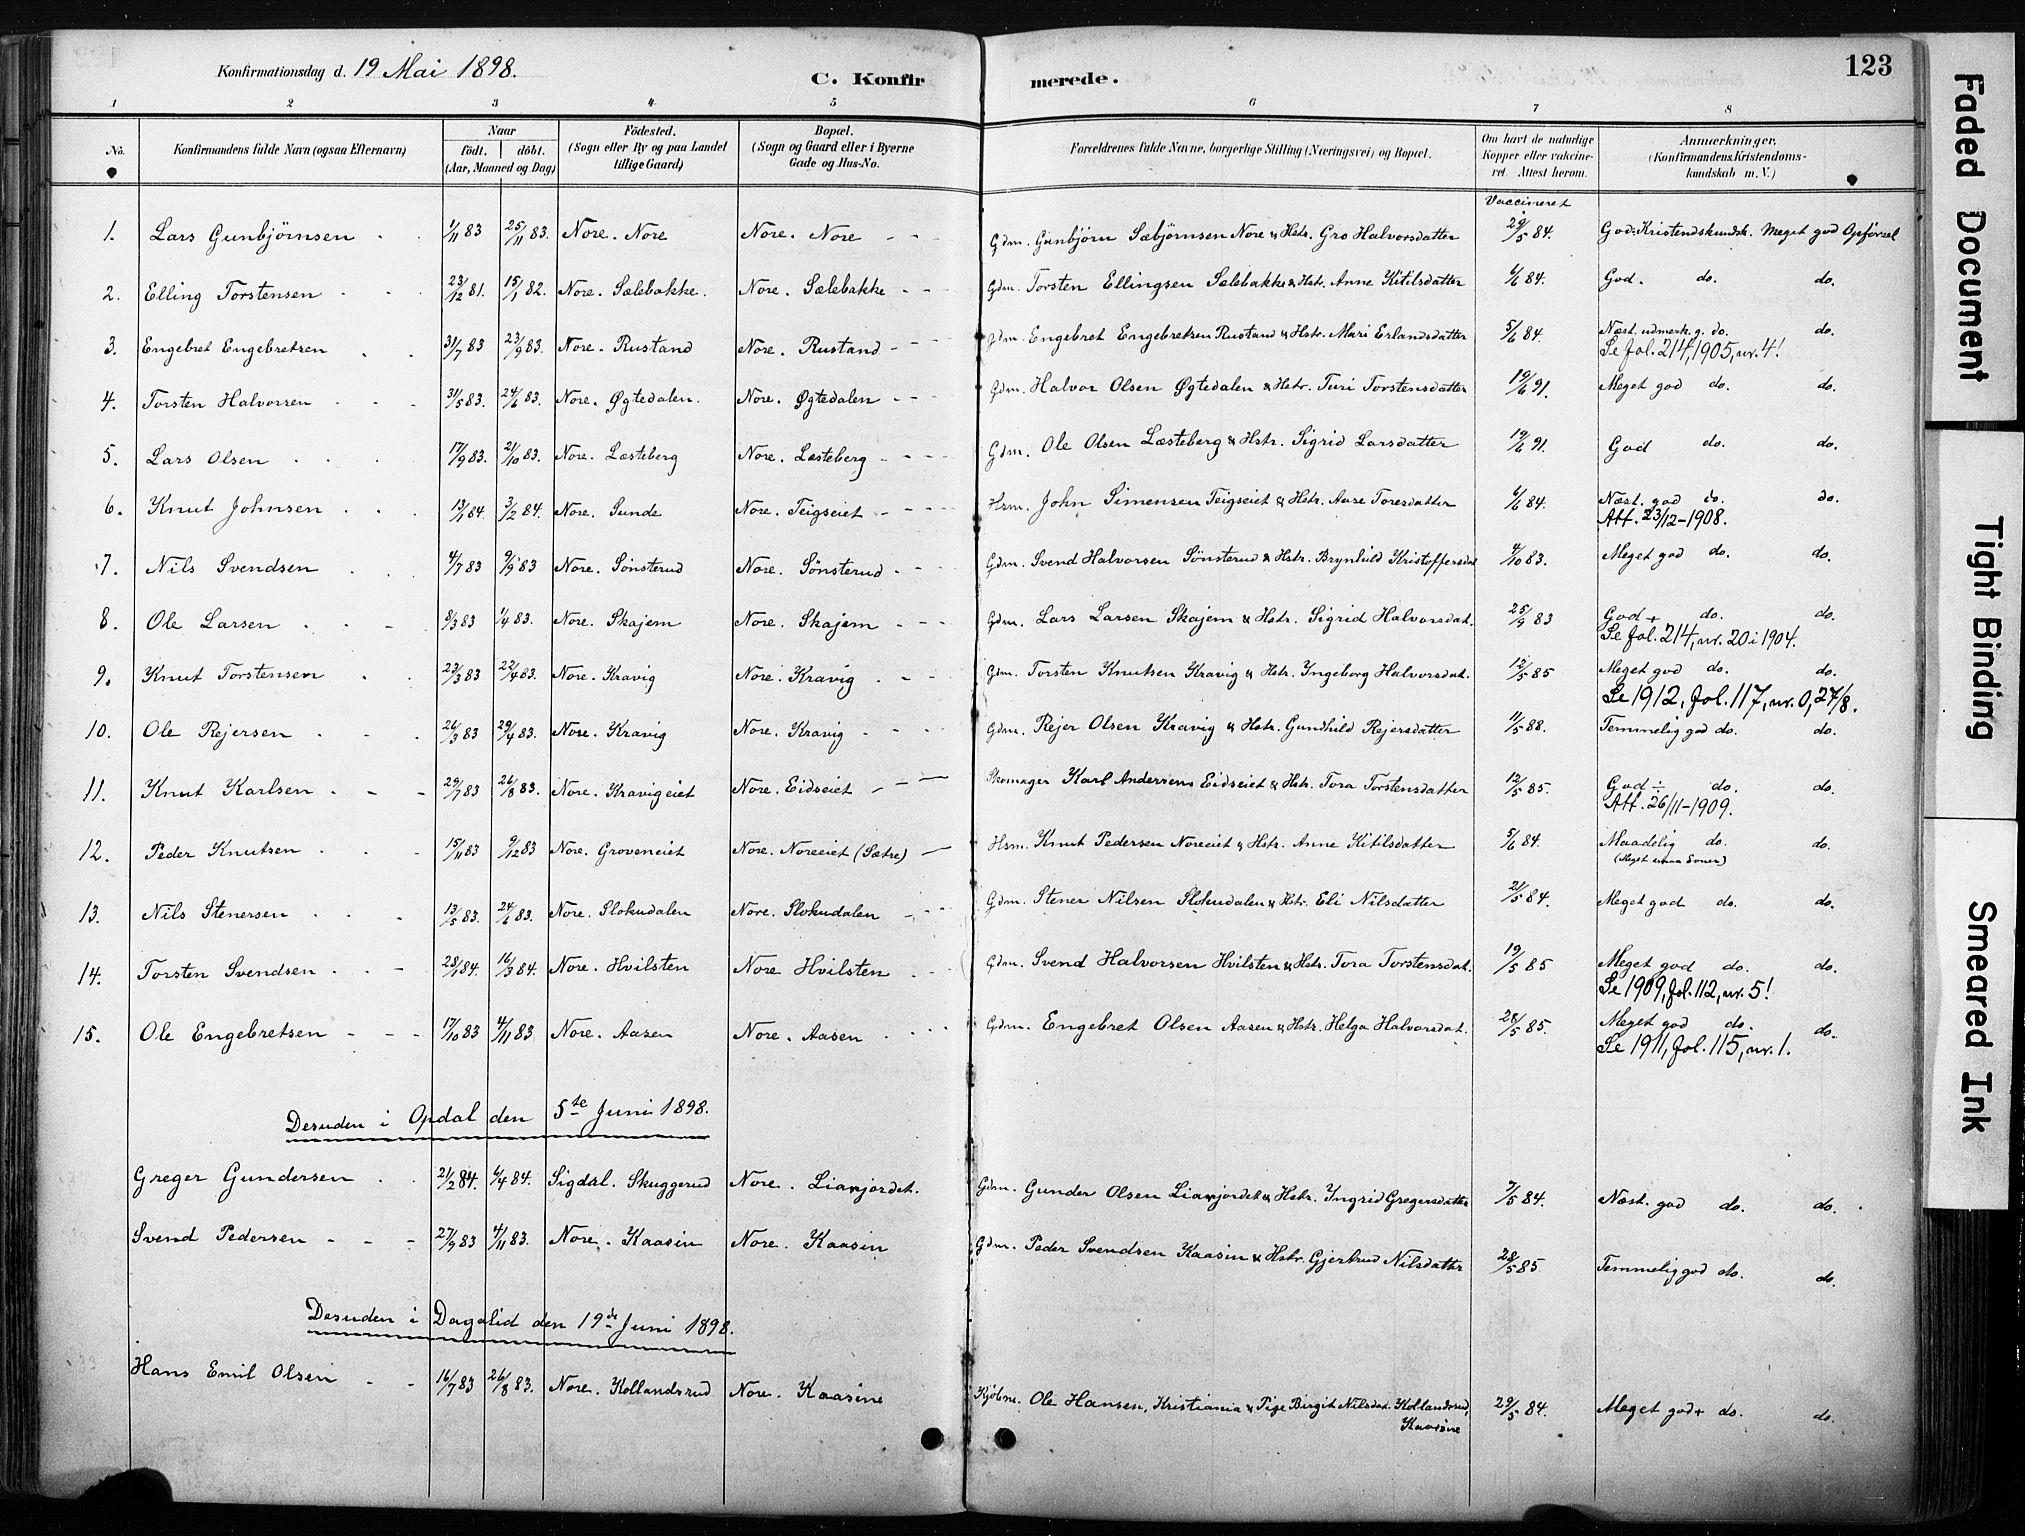 Konfirmationsdag d. 19 Mai 1898. C. Konfirmerede. 123
1 2 3 4 5 6 7 8
No. Konfirmandens fulde Navn (ogsaa Efternavn) Naar født. døbt. (Aar, Maaned og Dag) Fødested. (Sogn eller By og paa Landet tillige Gaard) Bopæl. (Sogn og Gaard eller i Byerne Gade og Hus-No. Forældrenes fulde Navne, borgerlige Stilling (Næringsvei) og Bopæl. Om havt de naturlige Kopper eller vakcineret. Attest herom. Anmærkninger. (Konfirmandens Kristendomskundskab m. V.)
Vaccineret
1. Lars Gunbjørnsen 1/11 83 25/11 83. Nore. Nore Nore. Nore Gdm. Gunbjørn Sæbjørnsen Nore & Hstr. Gro Halvorsdatter 29/5 84. God. Kristendskundsk. Meget god Opførsel
2. Elling Torstensen 23/12 81. 15/1 82. Nore. Sælebakke. Nore. Sælebakke Gdm. Torsten Ellingsen Sælebakke & Hstr. Anne Kitilsdatter 6/6 84. God. do. do.
3. Engebret Engebretsen 31/7 83 23/9 83. Nore. Rustand Nore. Rustand Gdm. Engebret Engebretsen Rustand & Hstr. Mari Erlandsdatter 5/6 84. Næst. udmerk. g. do. do.
Se fol. 214, 1905, nr. 4!
4. Torsten Halvorsen 31/5 83. 24/6 83. Nore. Øgtedalen. Nore. Øgtedalen Gdm. Halvor Olsen Øgtedalen & Hstr. Turi Torstensdatter 19/6 91. Meget god do. do.
5. Lars Olsen 17/9 83. 21/10 83. Nore. Læsteberg Nore. Læsteberg Gdm. Ole Olsen Læsteberg & Hstr. Sigrid Larsdatter 19/6 91. God do. do.
6. Knut Johnsen 13/1 84. 3/2 84. Nore. Sunde Nore. Teigseiet Hsm. John Simensen Teigseiet & Hstr. Aase Toresdatter 6/6 84. Næst. god do. do.
Att. 23/12-1908.
7. Nils Svendsen 4/7 83 9/9 83 Nore. Sønsterud Nore. Sønsterud Gdm. Svend Halvorsen Sønsterud & Hstr. Brynhild Kristoffersdat 4/10 83. Meget god do. do.
8. Ole Larsen 8/3 83 1/4 83. Nore. Skajem Nore. Skajem Gdm. Lars Larsen Skajem & Hstr. Sigrid Halvorsdat. 25/9 83 God + do. do.
Se fol. 214, nr. 20 i 1904.
9. Knut Torstensen 23/3 83 22/4 83. Nore. Kravig Nore. Kravig Gdm. Torsten Knutsen Kravig & Hstr. Ingeborg Halvorsdat. 12/5 85 Meget god do. do.
Se 1912, fol. 117, nr. 0, 27/8.
10. Ole Rejersen 26/3 83 29/4 83. Nore. Kravig Nore. Kravig Gdm. Rejer Olsen Kravig & Hstr. Gundhild Rejersdatter 11/5 88. Temmelig god do. do.
11. Knut Karlsen 29/7 83 26/8 83. Nore. Kravigeiet Nore. Eidseiet Skomager Karl Andersen Eidseiet & Hstr. Tora Torstensdatter 12/5 85. God ÷ do. do.
Att. 26/11-1909.
12. Peder Knutsen 15/11 83 9/12 83 Nore. Groveneiet Nore. Noreeiet (Sætre) Hsm. Knut Pedersen Noreeiet & Hstr. Anne Kitilsdatter 5/6 84. Maadelig do. do.
(Meget smaa Evner)
13. Nils Stenersen 13/5 83. 24/6 83. Nore. Slokudalen Nore. Slokudalen Gdm. Stener Nilsen Slokudalen & Hstr. Eli Nilsdatter 21/5 84. Meget god do. do.
14. Torsten Svendsen 28/1 84. 16/3 84. Nore. Hvilsten Nore Hvilsten Gdm. Svend Halvorsen Hvilsten & Hstr. Tora Torstensdat. 19/5 85 Meget god do. do.
Se 1909, fol. 112, nr. 5!
15. Ole Engebretsen 17/10 83 4/11 83 Nore. Aasen Nore. Aasen Gdm. Engebret Olsen Aasen & Hstr. Helga Halvorsdat. 28/5 85. Meget god do. do.
Se 1911, fol. 115, nr. 1.
Desuden i Opdal den 5te Juni 1898.
Greger Gundersen 21/2 84. 6/4 84. Sigdal. Skuggerud Nore. Lianjordet. Gdm. Gunder Olsen Lianjordet & Hstr. Yngrid Gregersdatter 7/5 84. Næst. god do. do.
Svend Pedersen 27/9 83 4/11 83. Nore. Kaasin Nore. Kaasin Gdm. Peder Svendsen Kaasin & Hstr. Gjertrud Nilsdatter 28/5 85. Temmelig god do. do.
Desuden i Dagalid den 19de Juni 1898.
Hans Emil Olsen 16/7 83 26/8 83. Nore. Kollandsrud Nore. Kaasine Kjøbm. Ole Hansen, Kristiania & Pige Birgit Nilsdat. Kollandsrud, 29/5 84. Meget god + do. do.
Kaasine
Faded Document
Tight Binding
Smeared Ink